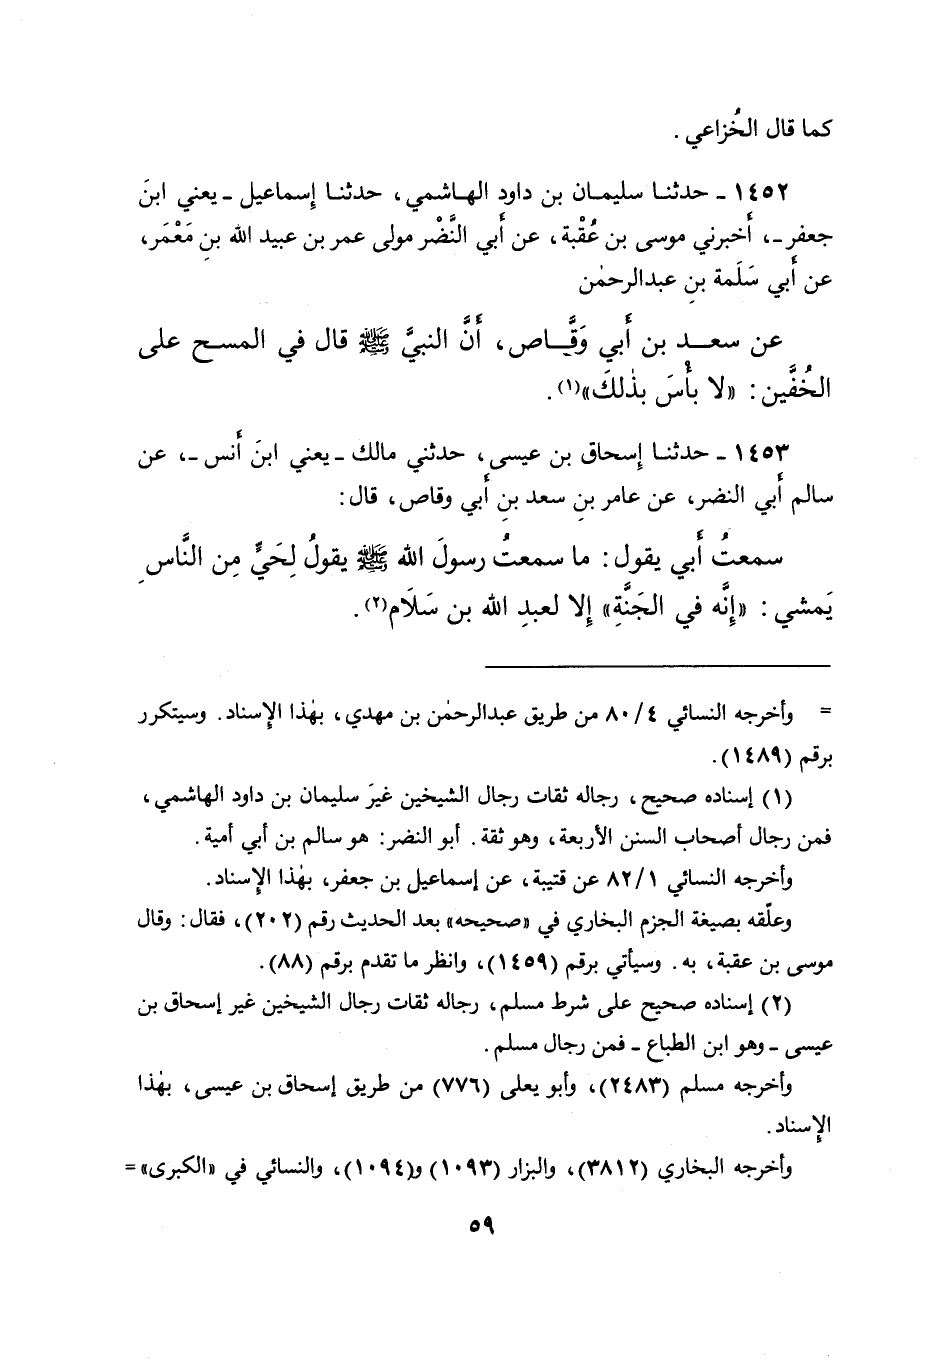 كما قال الخُزاعي .
١٤٥٢ ـ حدثنا سليمان بن داود الهاشمي، حدثنا إسماعيل ـ يعني ابنَ
جعفر ـ، أخبرني موسى بن عُقْبة، عن أبي النَّضْر مولى عمر بن عبيد الله بنِ مَعْمَر،
عن أبي سَلَمة بنِ عبدالرحمٰن
عن سعد بن أبي وَقَّاص، أَنَّ النبيَّ ﷺ قال في المسح على
الخُفَّين: «لا بأْسَ بذٰلكَ»(١).
١٤٥٣ ـ حدثنا إسحاق بن عيسى، حدثني مالك ـ يعني ابنَ أنس ـ، عن
سالم أبي النضر، عن عامر بنِ سعد بنِ أبي وقاص، قال:
سمعتُ أَبي يقول: ما سمعتُ رسولَ الله ﷺ يقولُ لِحَيٍّ مِن النَّاسِ
يَمشي: «إِنَّه في الجَنَّةِ» إِلا لعبدِ الله بن سَلَام(٢).
= وأخرجه النسائي ٨٠/٤ من طريق عبدالرحمٰن بن مهدي، بهٰذا الإسناد. وسيتكرر
برقم (١٤٨٩).
(١) إسناده صحيح، رجاله ثقات رجال الشيخين غيرَ سليمان بن داود الهاشمي،
فمن رجال أصحاب السنن الأربعة، وهو ثقة. أبو النضر: هو سالم بن أبي أمية.
وأخرجه النسائي ٨٢/١ عن قتيبة، عن إسماعيل بن جعفر، بهٰذا الإسناد.
وعلّقه بصيغة الجزم البخاري في «صحيحه» بعد الحديث رقم (٢٠٢)، فقال: وقال
موسى بن عقبة، به. وسيأتي برقم (١٤٥٩)، وانظر ما تقدم برقم (٨٨).
(٢) إسناده صحيح على شرط مسلم، رجاله ثقات رجال الشيخين غير إسحاق بن
عيسى ـ وهو ابن الطباع ـ فمن رجال مسلم.
وأخرجه مسلم (٢٤٨٣)، وأبو يعلى (٧٧٦) من طريق إسحاق بن عيسى، بهٰذا
الإسناد.
وأخرجه البخاري (٣٨١٢)، والبزار (١٠٩٣) و(١٠٩٤)، والنسائي في «الكبرى» =
٥٩